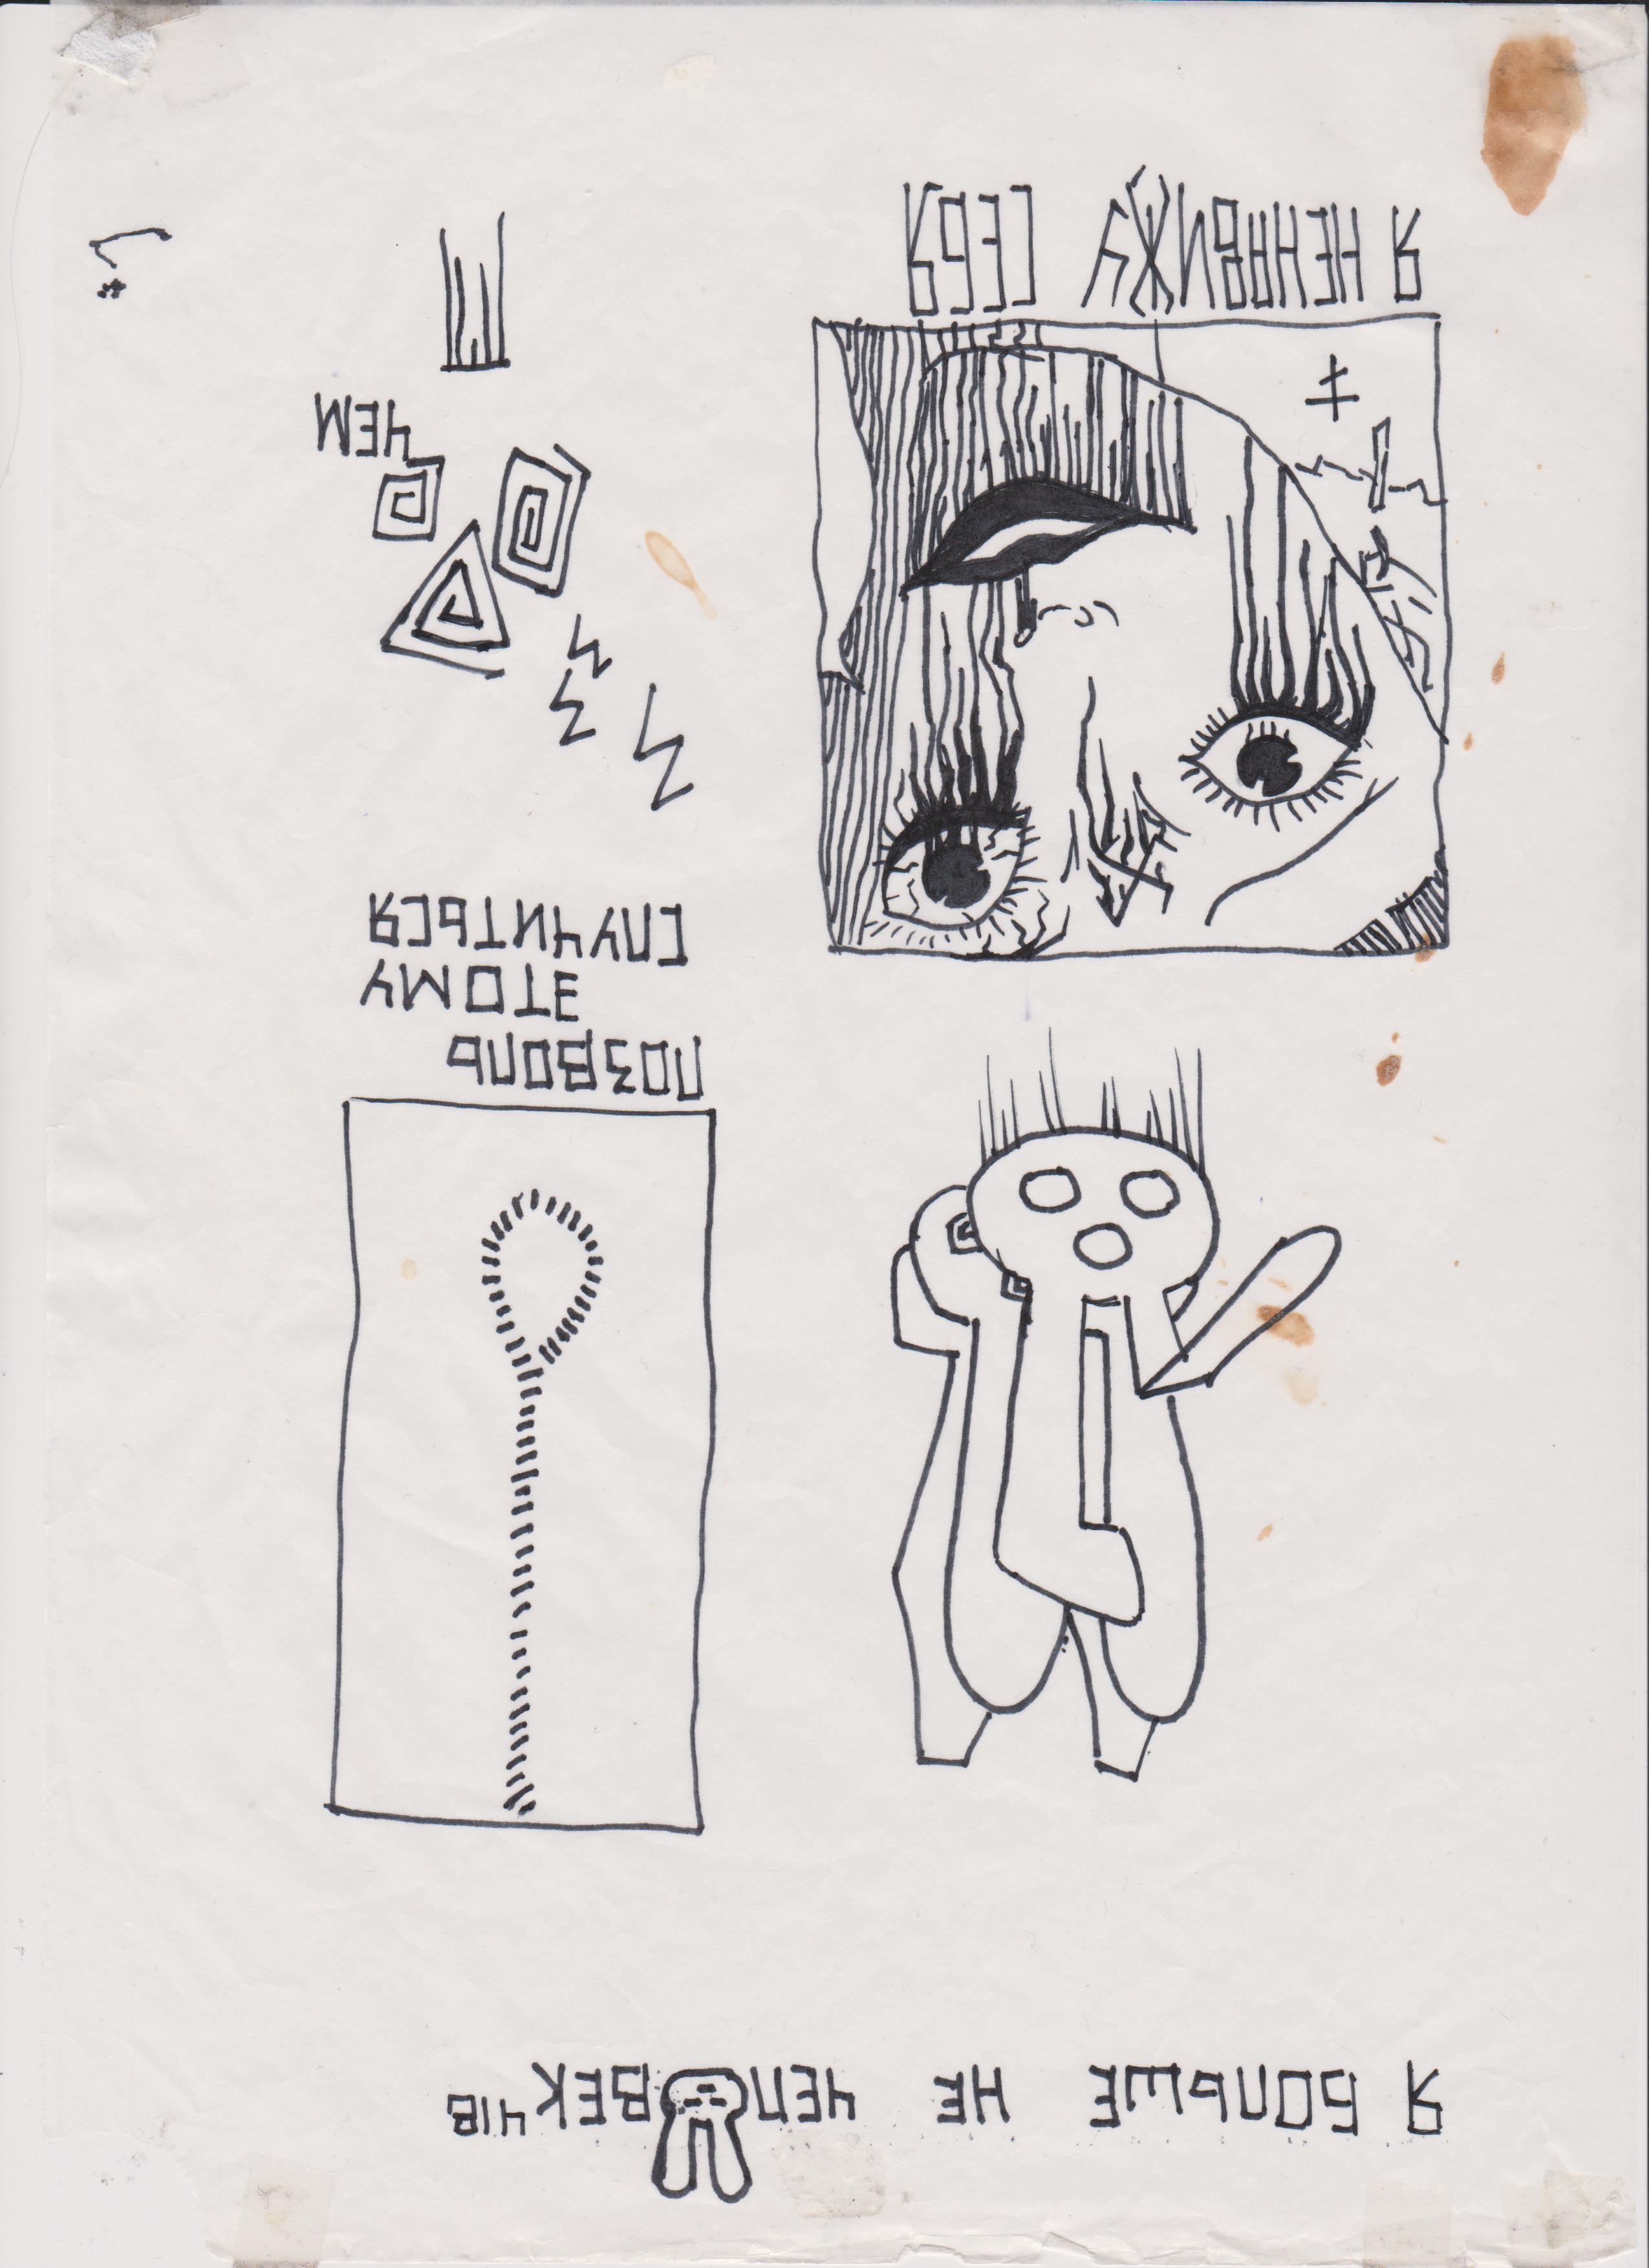 Я БОЛЬШЕ НЕ ЧЕЛОВЕК
ПОЗВОЛЬ
ЭТОМУ
СЛУЧИТЬСЯ
ЧЕМ
Я НЕНАВИЖУ СЕБЯ